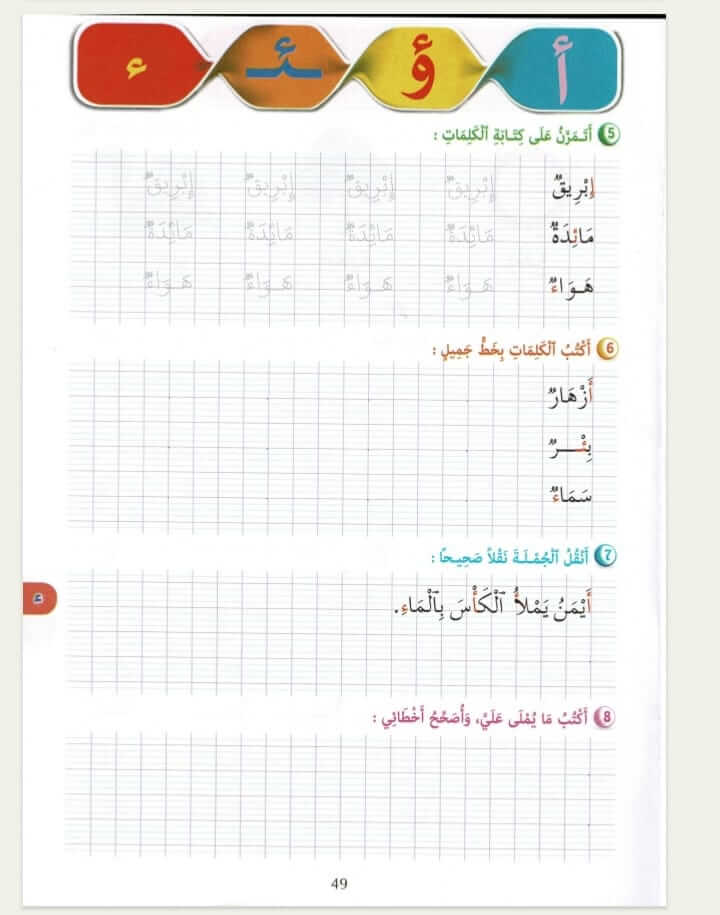 أ ؤ ـئـ ء
5 أَتَمَرَّنُ عَلَى كِتَابَةِ ٱلْكَلِمَاتِ :
إِبْرِيقٌ إِبْرِيقٌ إِبْرِيقٌ إِبْرِيقٌ إِبْرِيقٌ
مَائِدَةٌ مَائِدَةٌ مَائِدَةٌ مَائِدَةٌ مَائِدَةٌ
هَـوَاءٌ هَـوَاءٌ هَـوَاءٌ هَـوَاءٌ هَـوَاءٌ
6 أَكْتُبُ ٱلْكَلِمَاتِ بِخَطٍّ جَمِيلٍ :
أَزْهَارٌ
بِئْـــرٌ
سَمَاءٌ
7 أَنْقُلُ ٱلْجُمْـلَـةَ نَقْلاً صَحِيـحًا :
أَيْمَنُ يَمْلأُ ٱلْكَأْسَ بِٱلْمَاءِ.
ء
8 أَكْتُبُ مَا يُمْلَى عَلَيَّ، وَأُصَحِّحُ أَخْطَائِي :
49